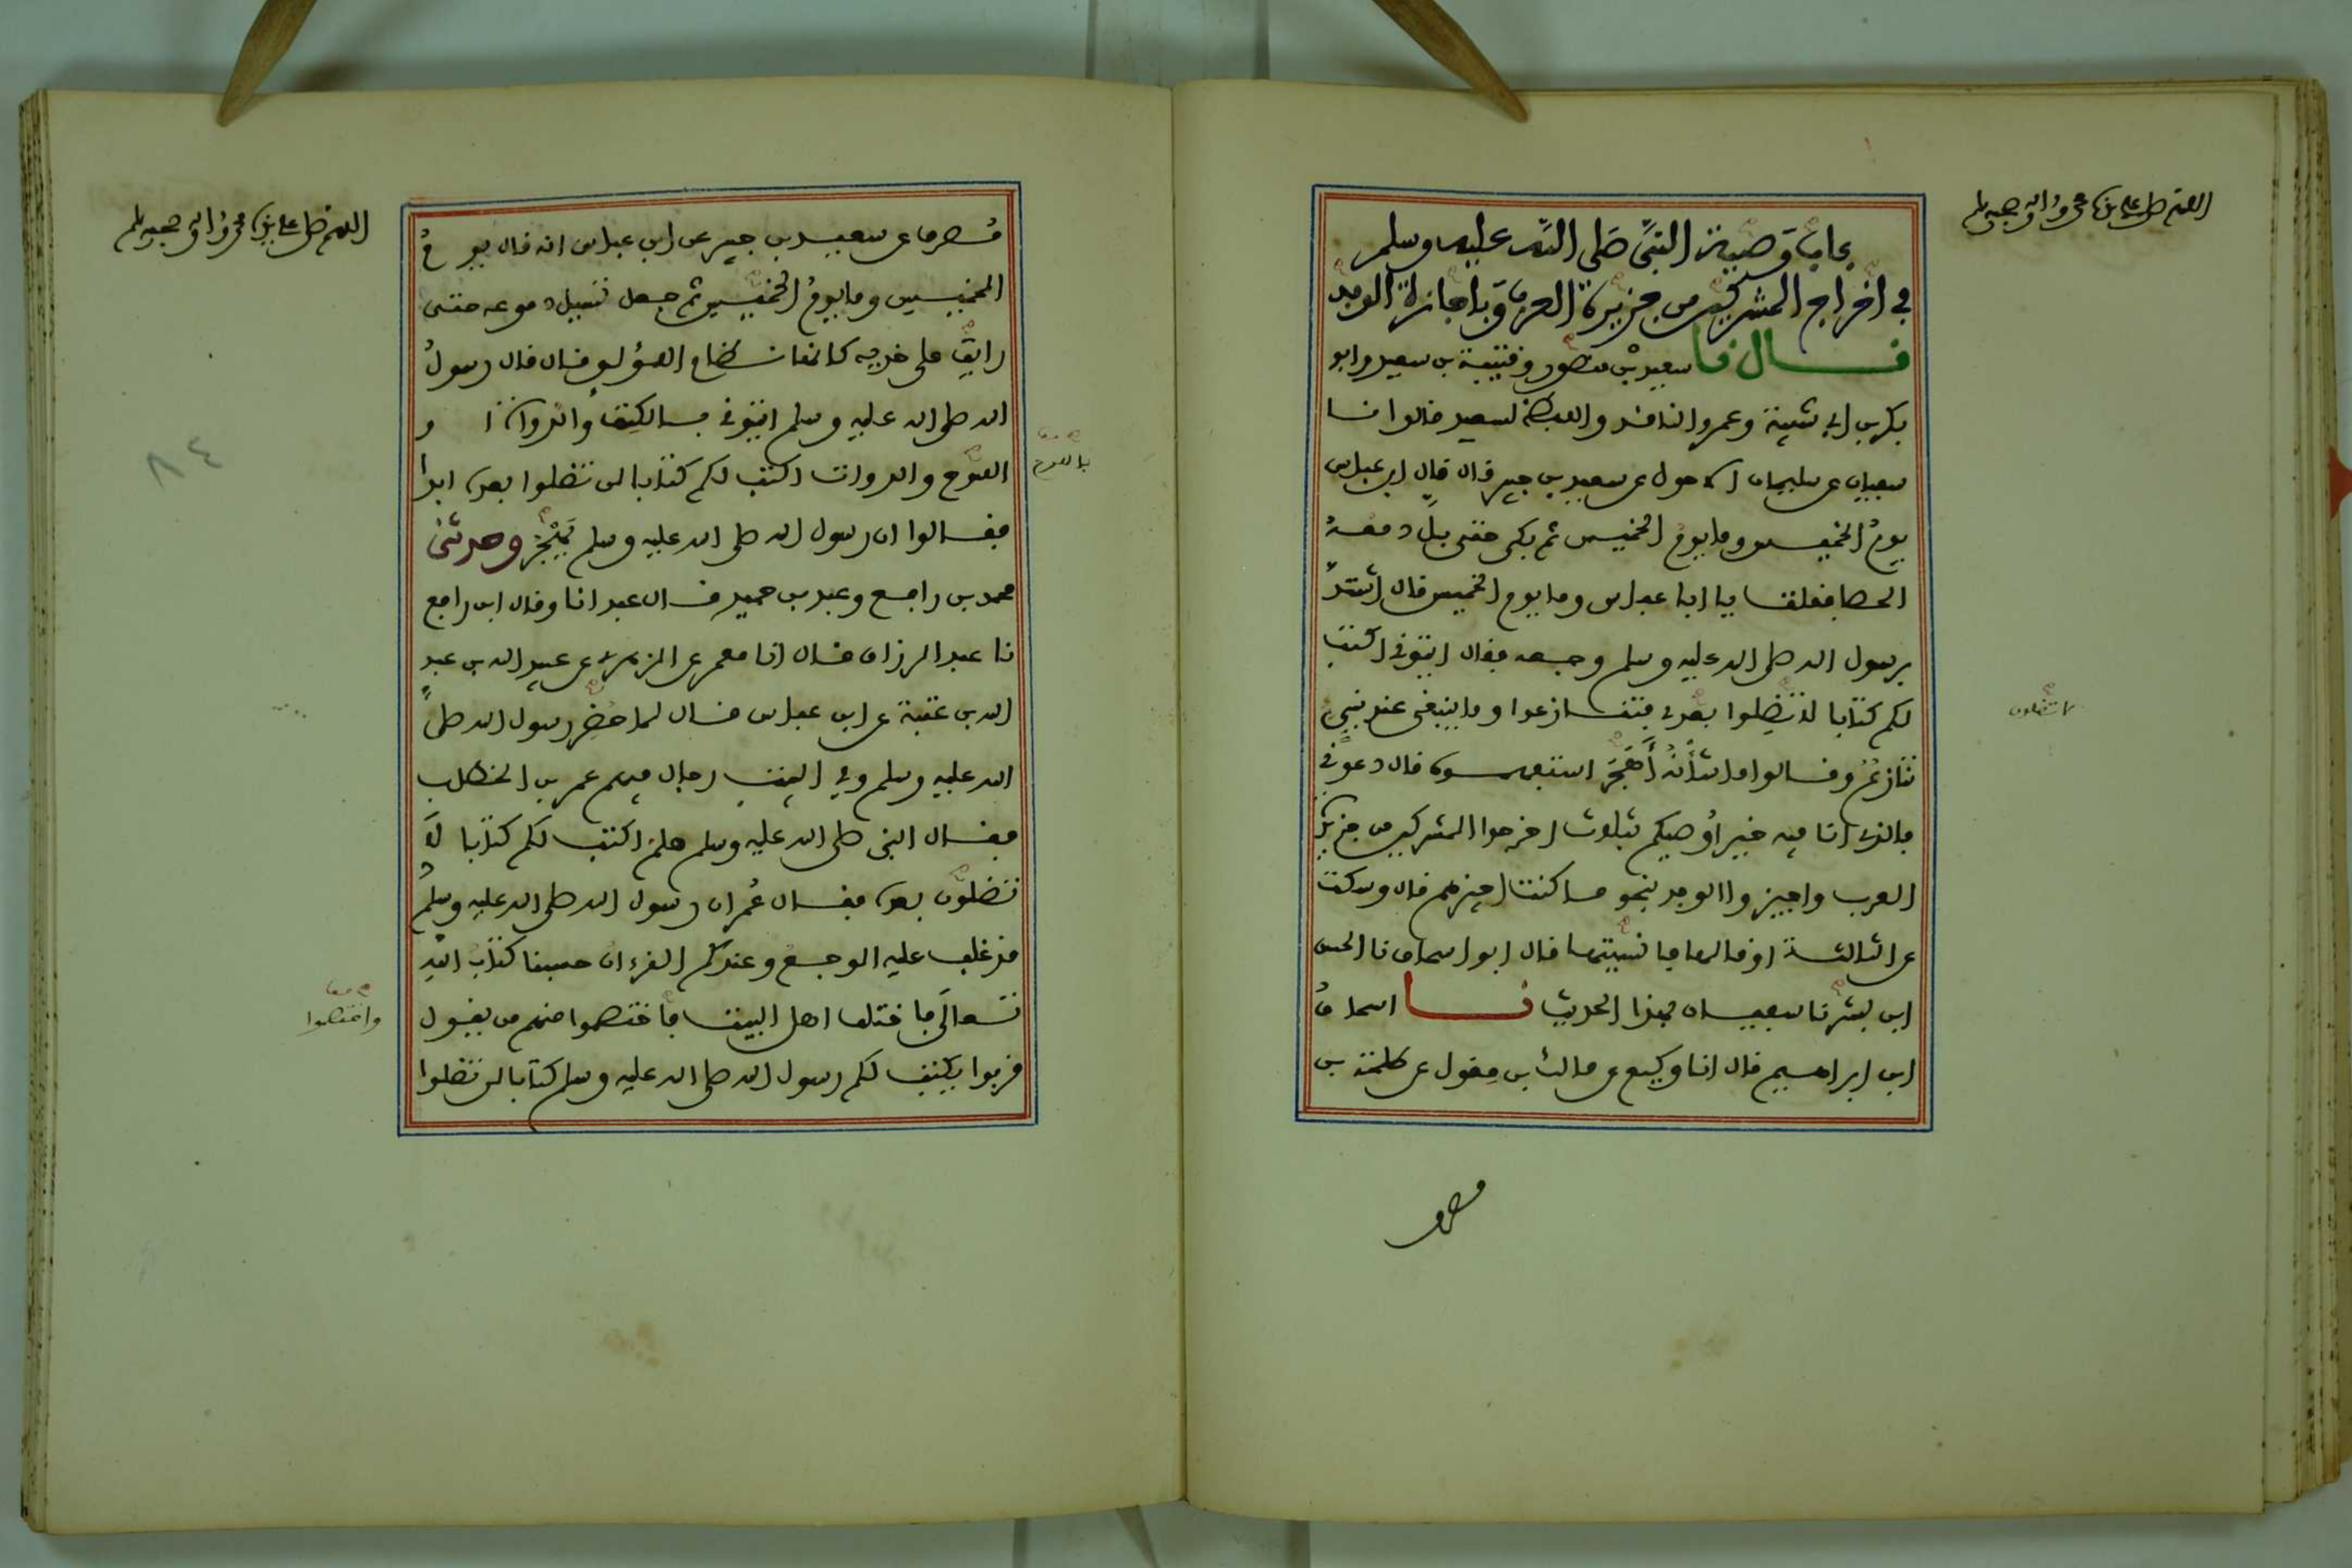 اللهم صل على نبينا محمد وءاله وصحبه وسلم
باب وصية النبي صلى الله عليه وسلم
في اخراج المشركين من جزيرة العرب وباجازة الوفد
قال نا سعيد بن منصور وقتيبة بن سعيد وابو
بكر بن ابي شيبة وعمرو الناقد واللفظ لسعيد قالوا نا
سفيان عن سليمان الاحول عن سعيد بن جبير قال قال ابن عباس
يوم الخميس وما يوم الخميس ثم بكى حتى بل دمعه
الحصا فقلت يا ابا عباس وما يوم الخميس قال اشتد
برسول الله صلى الله عليه وسلم وجعه فقال ايتوني اكتب
لكم كتابا لا تضلوا بعدي فتنازعوا وما ينبغي عند نبي
تنازع وقالوا ما شأنه أهجر استفهموه قال دعوني
فالذي انا فيه خير أوصيكم بثلاث اخرجوا المشركين من جزيرة
العرب واجيزوا الوفد بنحو ما كنت اجيزهم قال وسكت
عن الثالثة او قالها فانسيتها قال ابو اسحاق نا الحسن
ابن بشر نا سفيان بهذا الحديث نا اسحاق
ابن ابراهيم قال انا وكيع عن مالك بن مغول عن طلحة بن
لا تضلون
مصرف
اللهم صل على نبينا محمد وءاله وصحبه وسلم
مصرف عن سعيد بن جبير عن ابن عباس انه قال يوم
الخميس وما يوم الخميس ثم جعل تسيل دموعه حتى
رايت على خديه كانها نظام اللؤلو قال قال رسول
الله صلى الله عليه وسلم ايتوني بالكتف والدواة او
اللوح والدوات اكتب لكم كتابا لن تضلوا بعده ابدا
فقالوا ان رسول الله صلى الله عليه وسلم يهجر وحدثني
محمد بن رافع وعبد بن حميد قال عبد انا وقال ابن رافع
نا عبد الرزاق قال انا معمر عن الزهري عن عبيد الله بن عبد
الله بن عتبة عن ابن عباس قال لما حضر رسول الله صلى
الله عليه وسلم وفي البيت رجال فيهم عمر بن الخطاب
فقال النبي صلى الله عليه وسلم هلم اكتب لكم كتابا لا
تضلون بعده فقال عمر ان رسول الله صلى الله عليه وسلم
قد غلب عليه الوجع وعندكم القرءان حسبنا كتاب الله
تعالى فاختلف اهل البيت فاختصموا منهم من يقول
قربوا يكتب لكم رسول الله صلى الله عليه وسلم كتابا لن تضلوا
باللوح
واختصموا
٨٤